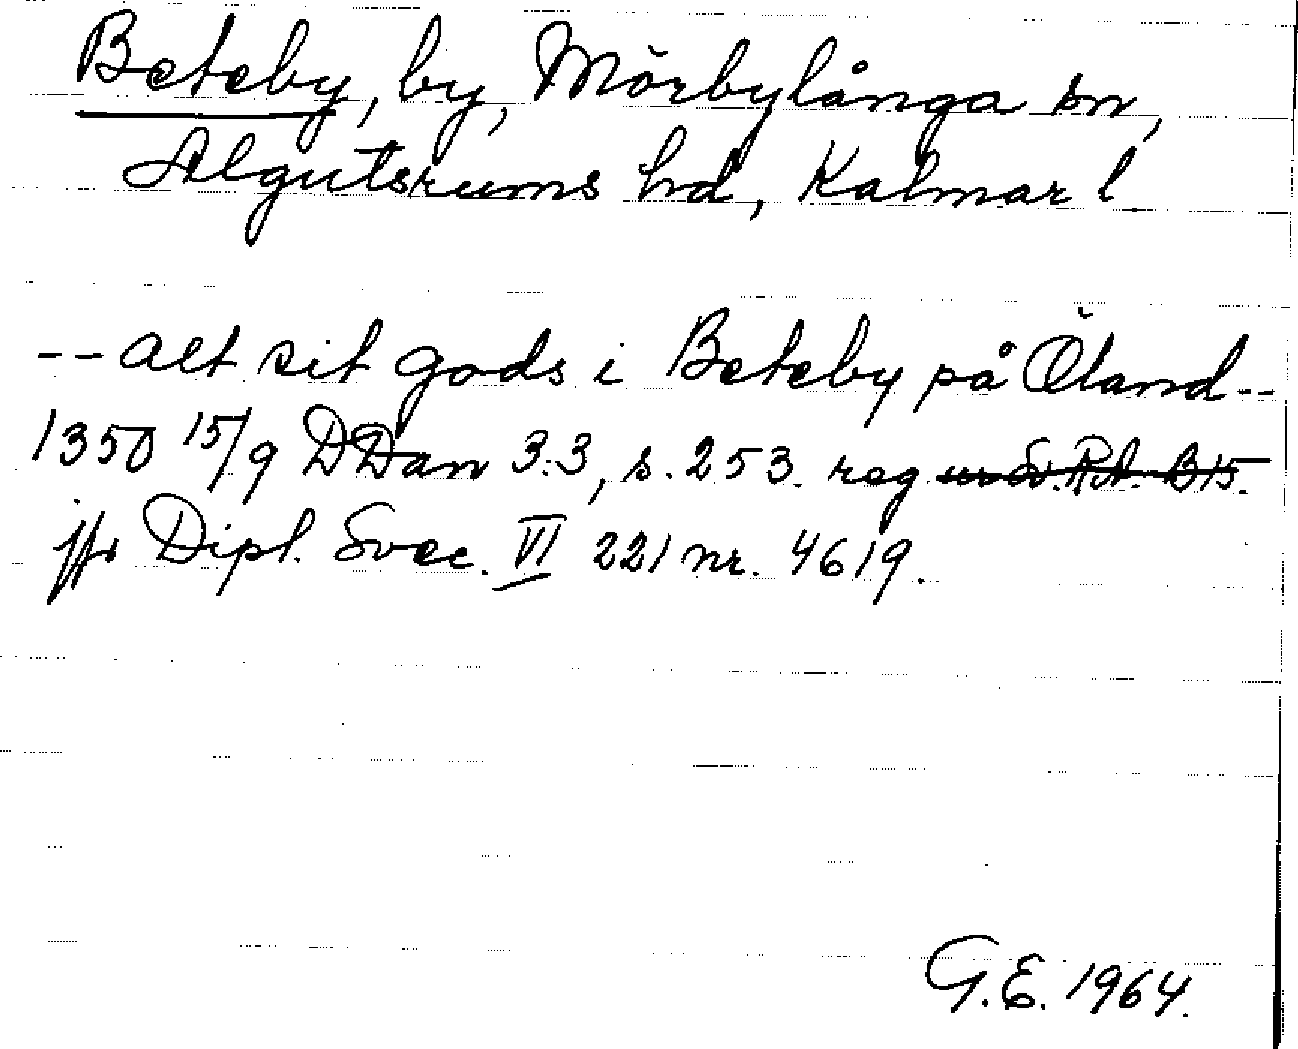 Beteby, by, Mörbylånga sn,
Algutsrums hd, Kalmar l
-- alt sit gods i Beteby på Öland --
1350 15/9 DDan 3.3, s. 253. reg ur Sv. RA. B15.
jfr Dipl. Svec. VI 221 nr. 4619.
G.E. 1964.